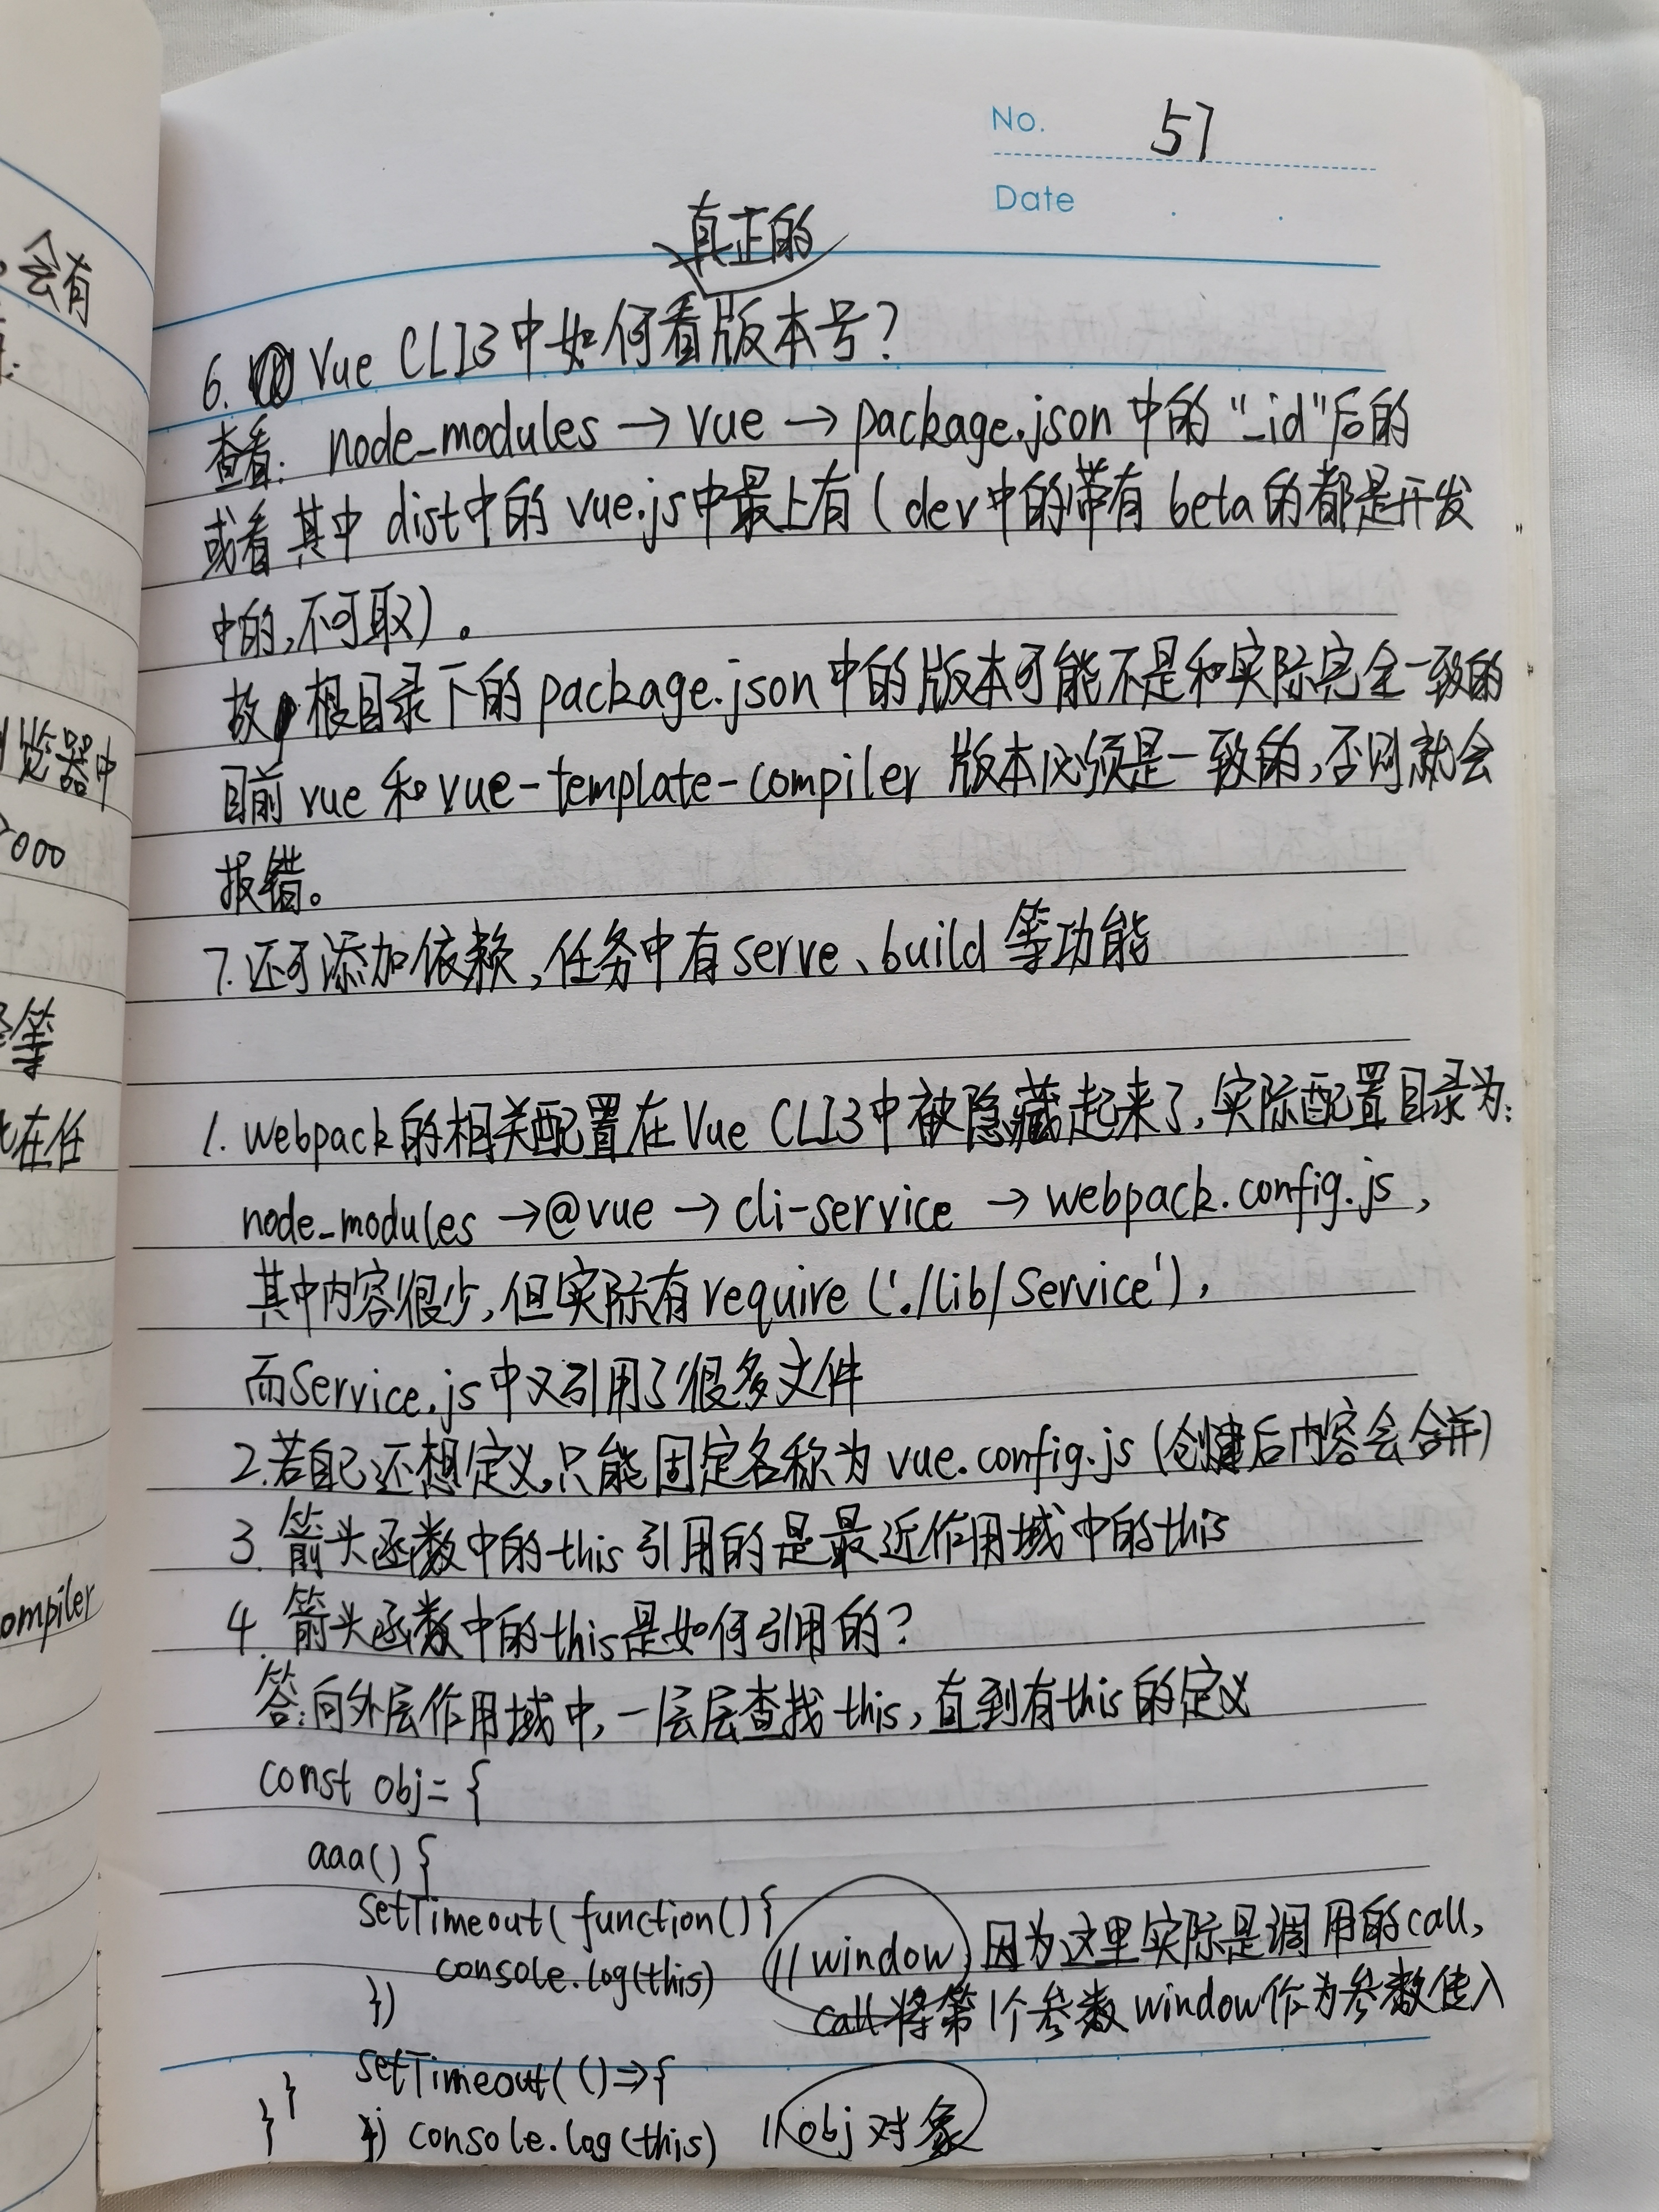 No. 57
Date
真正的
6. Vue CLI3中如何看版本号?
查看: node_modules → vue → package.json 中的 "_id"后的
或看其中 dist中的 vue.js中最上有 ( dev中的带有 beta 的都是开发
中的,不可取)。
故 根目录下的 package.json 中的版本可能不是和实际完全一致的
目前 vue 和 vue-template-compiler 版本必须是一致的,否则就会
报错。
7. 还可添加依赖,任务中有 serve、build 等功能
1. webpack 的相关配置在 Vue CLI3中被隐藏起来了,实际配置目录为:
node_modules →@vue → cli-service → webpack.config.js,
其中内容很少,但实际有 require ('./lib/Service'),
而Service.js 中又引用了很多文件
2.若自己还想定义,只能固定名称为 vue.config.js (创建后内容会合并)
3. 箭头函数中的this 引用的是最近作用域中的this
4. 箭头函数中的this是如何引用的?
答:向外层作用域中,一层层查找 this,直到有this 的定义
const obj= {
aaa() {
setTimeout( function() {
console.log(this) // window,因为这里实际是调用的call,
}) call 将第1个参数 window作为参数传入
setTimeout( () => {
} } }) console.log(this) // obj 对象
会有
览器中
2000
等
在任
ompiler